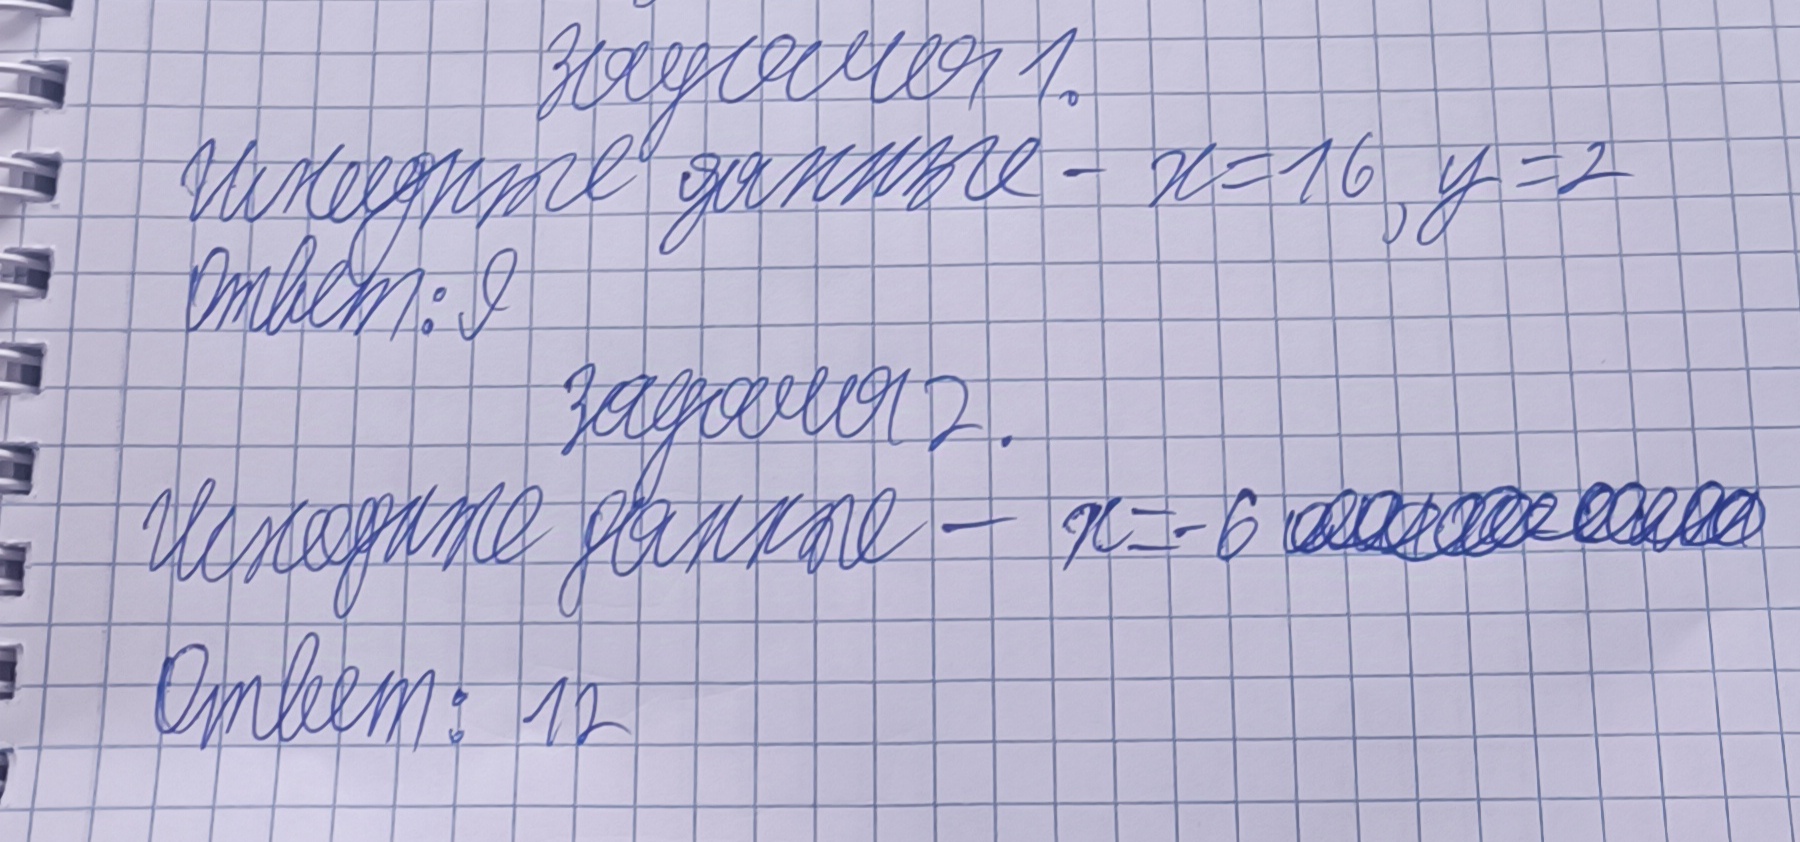 Задания 1.
Исходные данные - x=16, y=2
Ответ: 9
Задания 2.
Исходные данные - x=-6
Ответ: 12